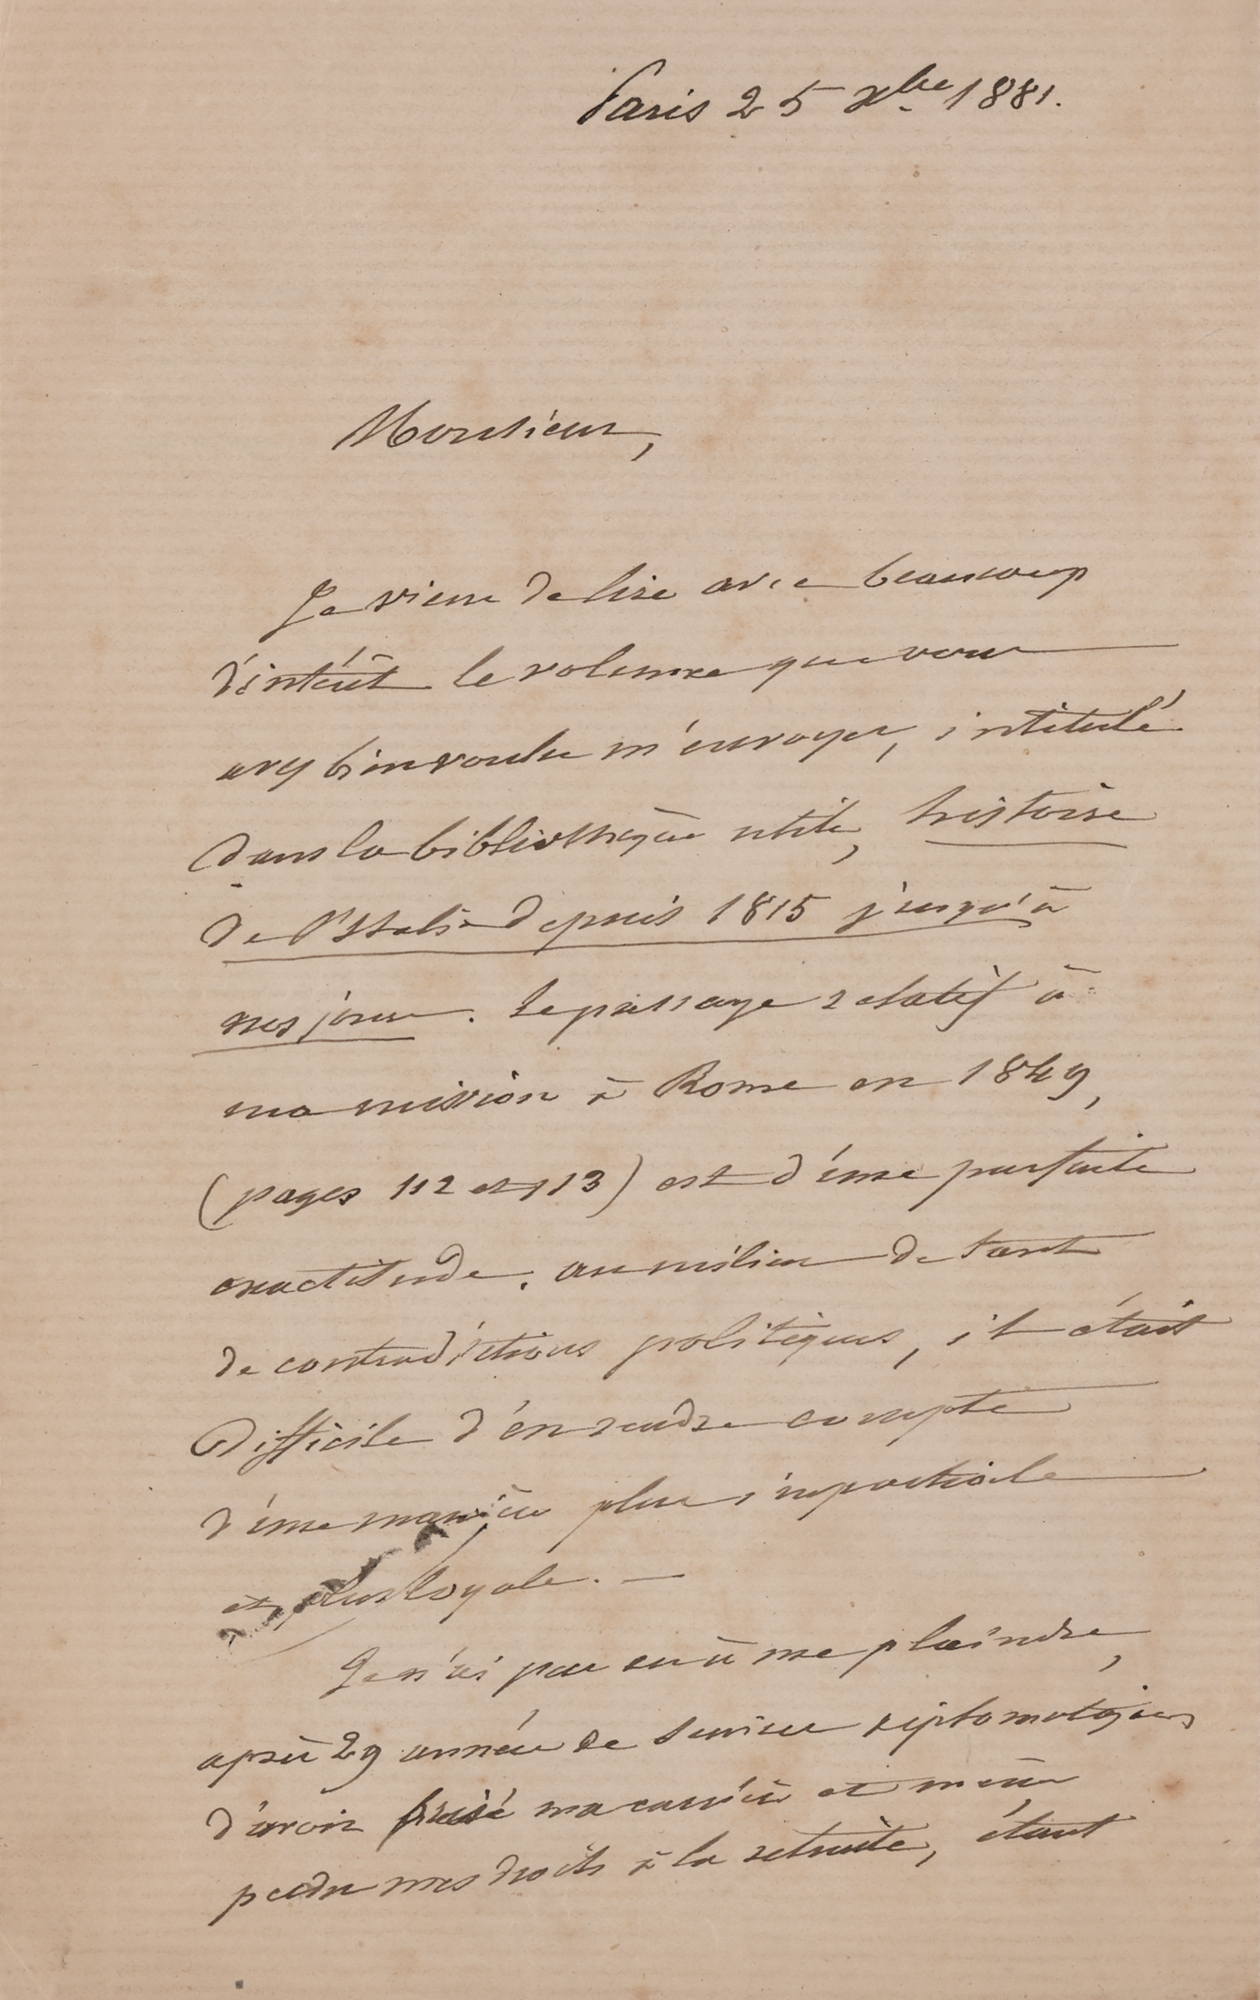 Paris 25 Xbre 1881.
Monsieur,
Je viens de lire avec beaucoup
d'intérêt le volume que vous
avez bien voulu m'envoyer, intitulé
dans la bibliothèque utile, histoire
de l'Italie depuis 1815 jusqu'à
nos jours. Le passage relatif à
ma mission à Rome en 1849,
(pages 112 et 113) est d'une parfaite
exactitude. au milieu de tant
de contradictions politiques, il était
difficile d'en rendre compte
d'une manière plus impartiale
et plus loyale. —
Je n'ai pas eu à me plaindre,
après 29 années de services diplomatiques,
d'avoir brisé ma carrière et même
perdu mes droits à la retraite, étant